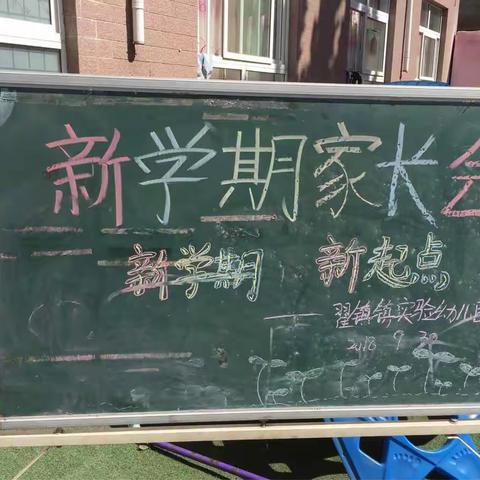 新学期家长会
新学期 新起点
翟镇镇实验幼儿园
2018 9 20